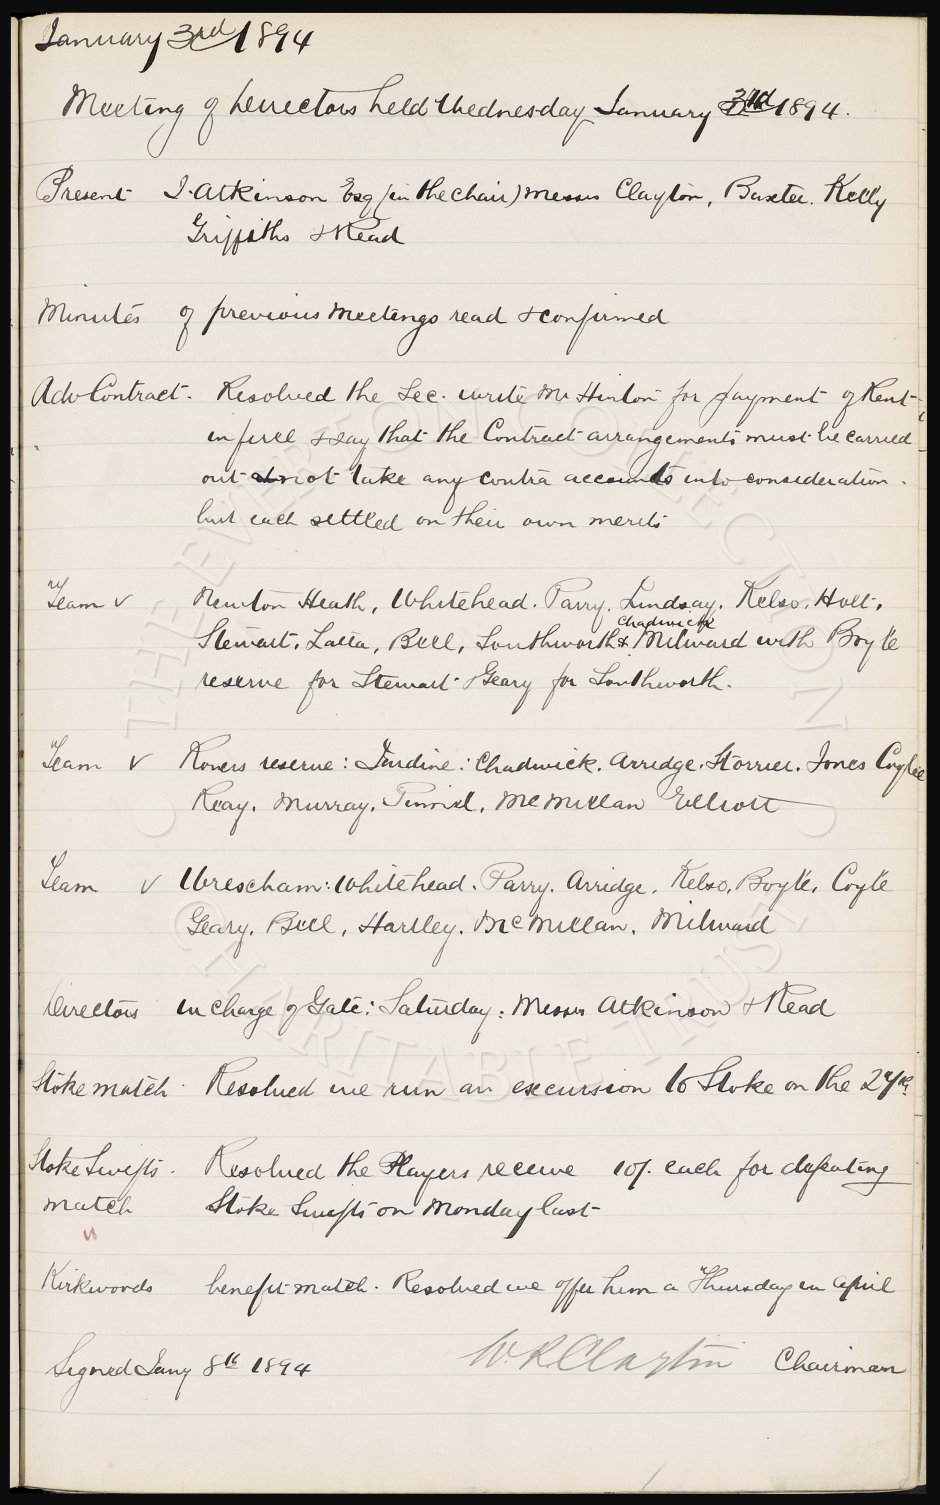 January 3rd 1894
Meeting of Directors held Wednesday January 3rd 1894.
Present J. Atkinson Esq (in the chair) Messrs Clayton, Baxter. Kelly
Griffiths & Read
Minutes of previous Meetings read & confirmed
Adv Contract. Resolved the Sec. write Mr Hinton for payment of Rent
in full & say that the Contract arrangements must be carried
out not take any contra accounts into consideration.
but each settled on their own merits
Team v Newton Heath, Whitehead. Parry. Lindsay. Kelso. Holt.
Chadwick
Stewart. Latta, Bell, Southworth & Milward with Boyle
reserve for Stewart & Geary for Southworth.
Team v Rovers reserve: Jardine: Chadwick. Arridge. Storrier. Jones Coyle
Reay. Murray. McMillan Elliott
Team v Wrexham: Whitehead. Parry. Arridge. Kelso, Boyle. Coyle
Geary. Bell, Hartley. McMillan. Milward
Directors in charge of Gate: Saturday: Messrs Atkinson & Read
Stoke match. Resolved we run an excursion to Stoke on the 27th
Stoke Swifts. Resolved the Players receive 10/. each for defeating
match Stoke Swifts on Monday last
v
Kirkwoods benefit match. Resolved we offer him a Thursday in April
Signed Jany 8th 1894 W. R Clayton Chairman
THE EVERTON COLLECTION
CHARITABLE TRUST